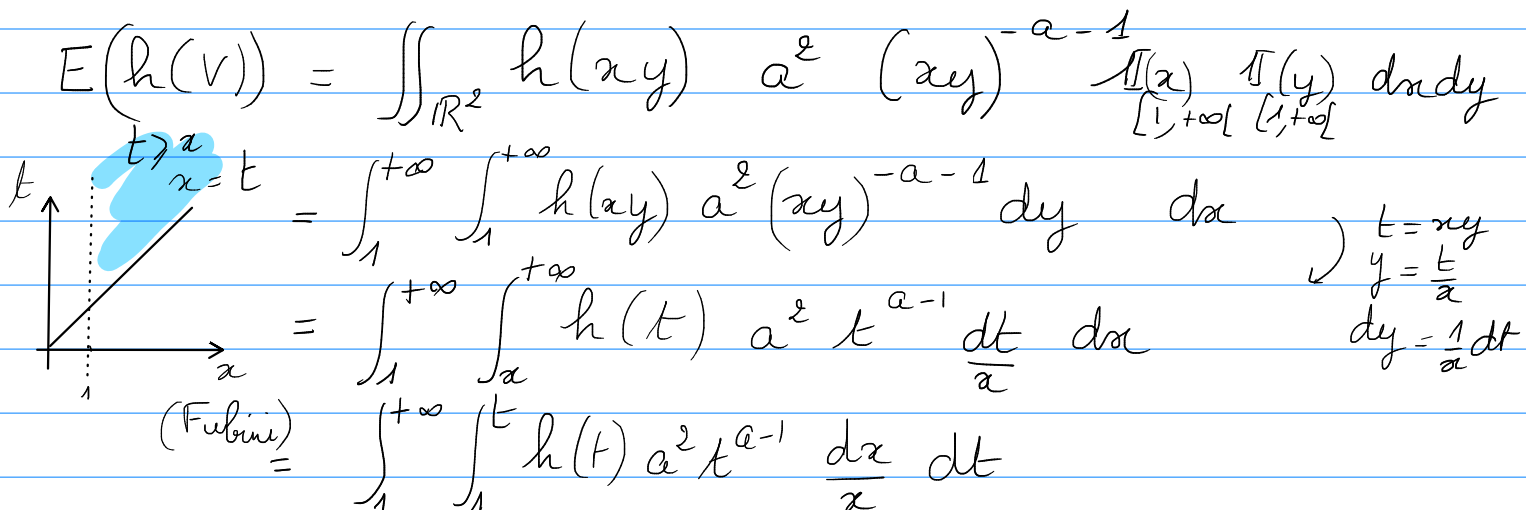 E(h(V)) = ∬_{ℝ²} h(xy) a² (xy)^{-a-1} 𝟙(x)_{[1,+∞[} 𝟙(y)_{[1,+∞[} dxdy
t ⩾ x
x = t
t
x
1
= ∫_1^{+∞} ∫_1^{+∞} h(xy) a² (xy)^{-a-1} dy dx
t = xy
y = t/x
dy = 1/x dt
= ∫_1^{+∞} ∫_x^{+∞} h(t) a² t^{a-1} dt/x dx
(Fubini)
= ∫_1^{+∞} ∫_1^t h(t) a² t^{a-1} dx/x dt